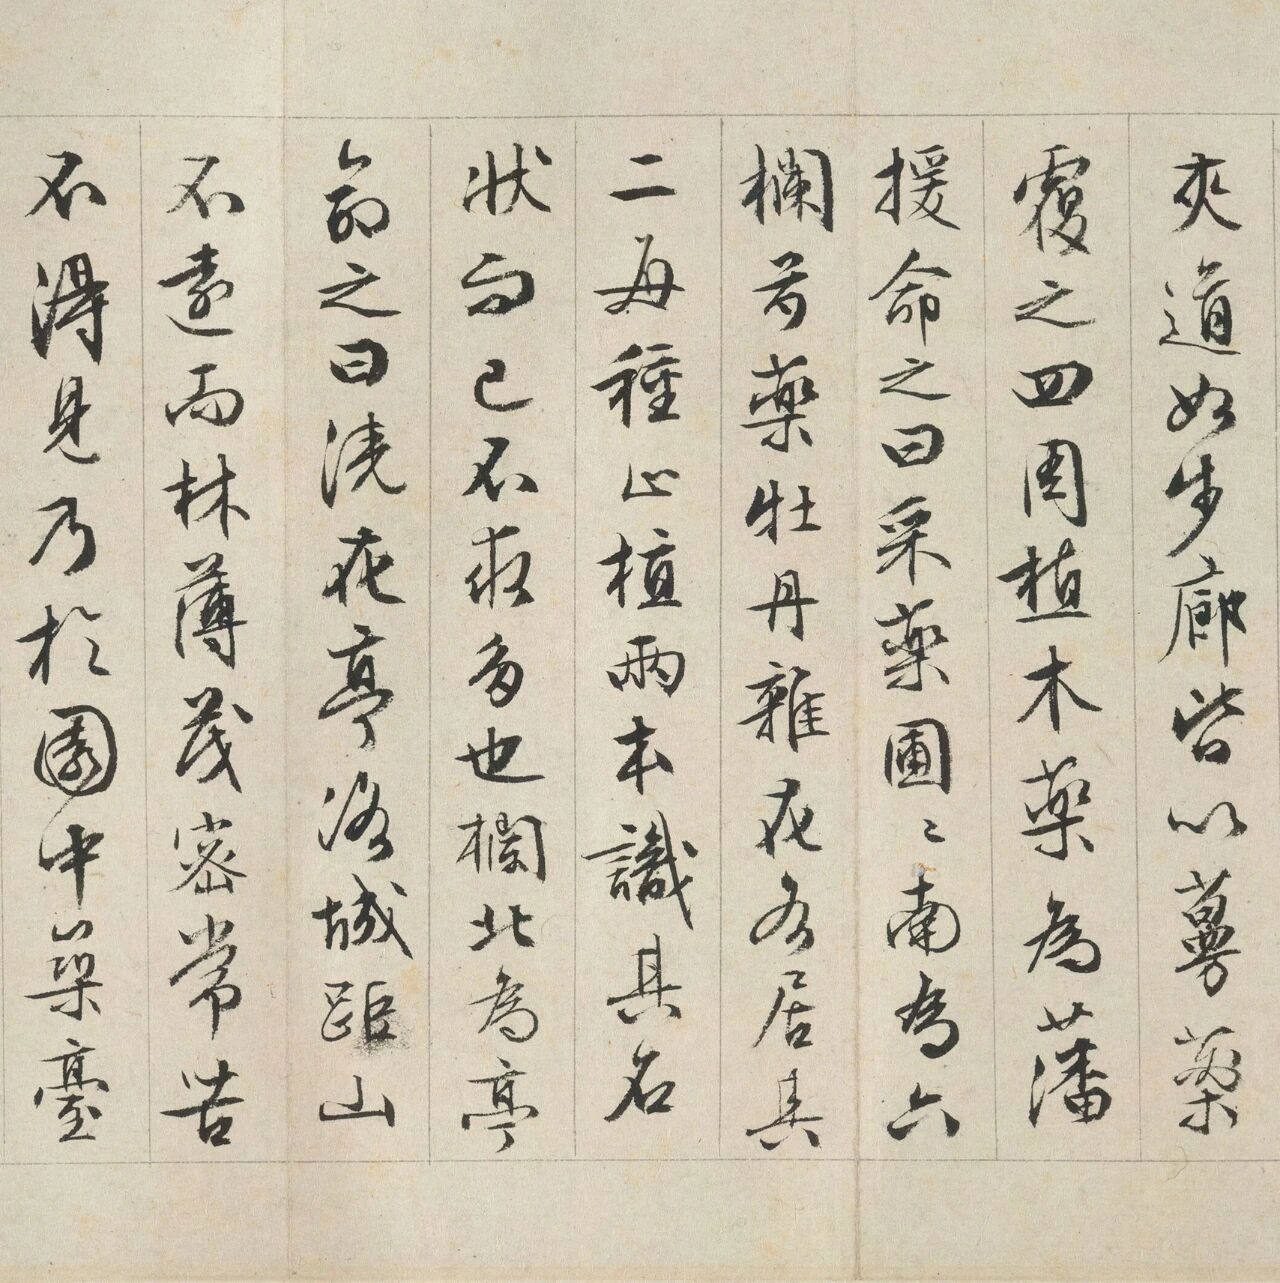 夾道如步廊皆以蔓藥
覆之四周植木藥為藩
援命之曰采藥圃〻南為六
欄芍藥牡丹雜花各居其
二每種止植兩本識其名
狀而已不求多也欄北為亭
命之曰澆花亭洛城距山
不遠而林薄茂密常苦
不得見乃於園中築臺